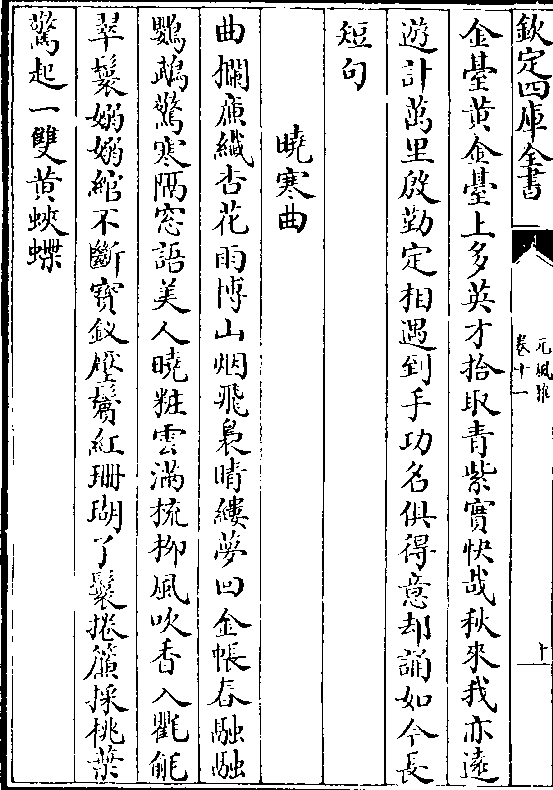 欽定四庫全書
元風雅
卷十一
十
金臺黄金臺上多英才拾取青紫實快哉秋來我亦遠
遊計萬里啟勤定相遇到手功名俱得意却誦如今長
短句
曉寒曲
曲攔䕃纖杏花雨博山烟飛裊晴縷夢回金帳春融融
鸚鵡驚寒隔窓語美人曉粧雲滿梳柳風吹香入氍毹
翠鬟嫋嫋綰不斷寳釵壓鬌紅珊瑚丫鬟捲簾採桃葉
驚起一雙黄蛺蝶